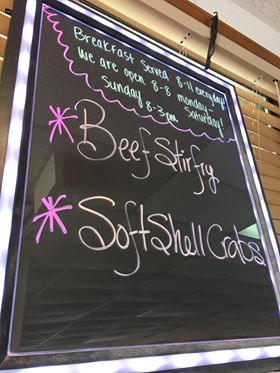 Breakfast Served 8-11 everyday!
We are open 8-8 monday-
Saturday!
Sunday 8-3pm
* Beef Stirfry
* Soft Shell Crabs